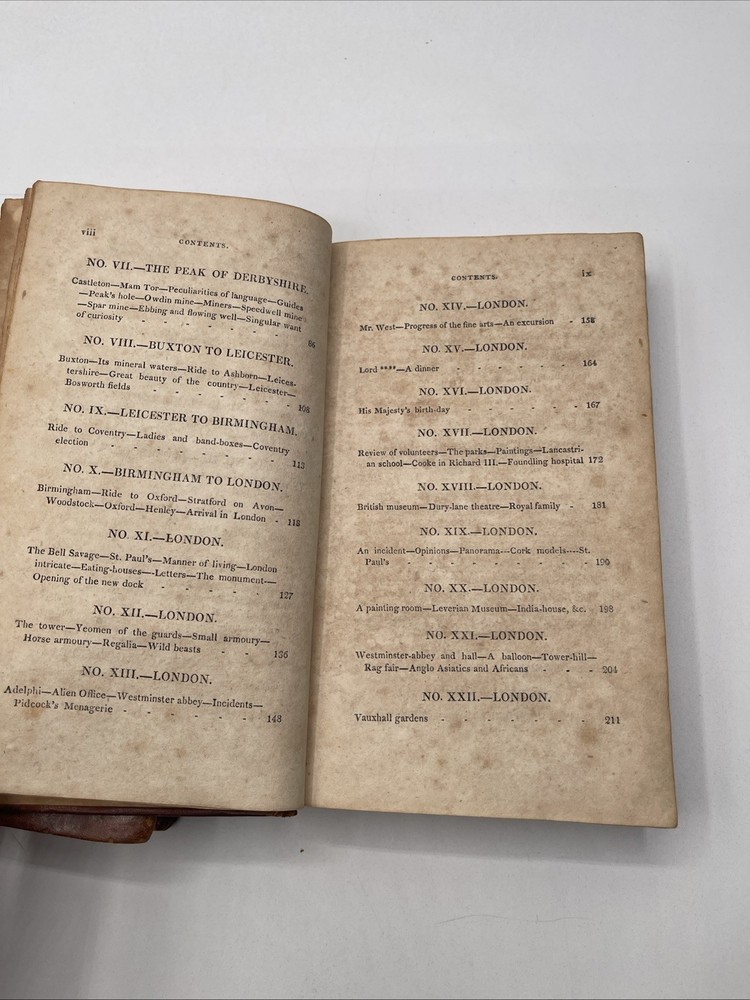 viii
CONTENTS.
NO. VII.—THE PEAK OF DERBYSHIRE.
Castleton—Mam Tor—Peculiarities of language—Guides
—Peak's hole—Owdin mine—Miners—Speedwell mine
—Spar mine—Ebbing and flowing well—Singular want
of curiosity - - - - - - 86
NO. VIII.—BUXTON TO LEICESTER.
Buxton—Its mineral waters—Ride to Ashborn—Leices-
tershire—Great beauty of the country—Leicester—
Bosworth fields - - - - - - 108
NO. IX.—LEICESTER TO BIRMINGHAM.
Ride to Coventry—Ladies and band-boxes—Coventry
election - - - - - - - 113
NO. X.—BIRMINGHAM TO LONDON.
Birmingham—Ride to Oxford—Stratford on Avon—
Woodstock—Oxford—Henley—Arrival in London - 118
NO. XI.—LONDON.
The Bell Savage—St. Paul's—Manner of living—London
intricate—Eating-houses—Letters—The monument—
Opening of the new dock - - - - - 127
NO. XII.—LONDON.
The tower—Yeomen of the guards—Small armoury—
Horse armoury—Regalia—Wild beasts - - - 136
NO. XIII.—LONDON.
Adelphi—Alien Office—Westminster abbey—Incidents—
Pidcock's Menagerie - - - - - - 148
CONTENTS.
ix
NO. XIV.—LONDON.
Mr. West—Progress of the fine arts—An excursion -
NO. XV.—LONDON.
Lord ****—A dinner - - - - - - 164
NO. XVI.—LONDON.
His Majesty's birth-day - - - - - - 167
NO. XVII.—LONDON.
Review of volunteers—The parks—Paintings—Lancastri-
an school—Cooke in Richard III.—Foundling hospital 172
NO. XVIII.—LONDON.
British museum—Dury-lane theatre—Royal family - 181
NO. XIX.—LONDON.
An incident—Opinions—Panorama---Cork models----St.
Paul's - - - - - - - - 190
NO. XX.—LONDON.
A painting room—Leverian Museum—India-house, &c. 198
NO. XXI.—LONDON.
Westminster-abbey and hall—A balloon—Tower-hill—
Rag fair—Anglo Asiatics and Africans - - - 204
NO. XXII.—LONDON.
Vauxhall gardens - - - - - - - 211